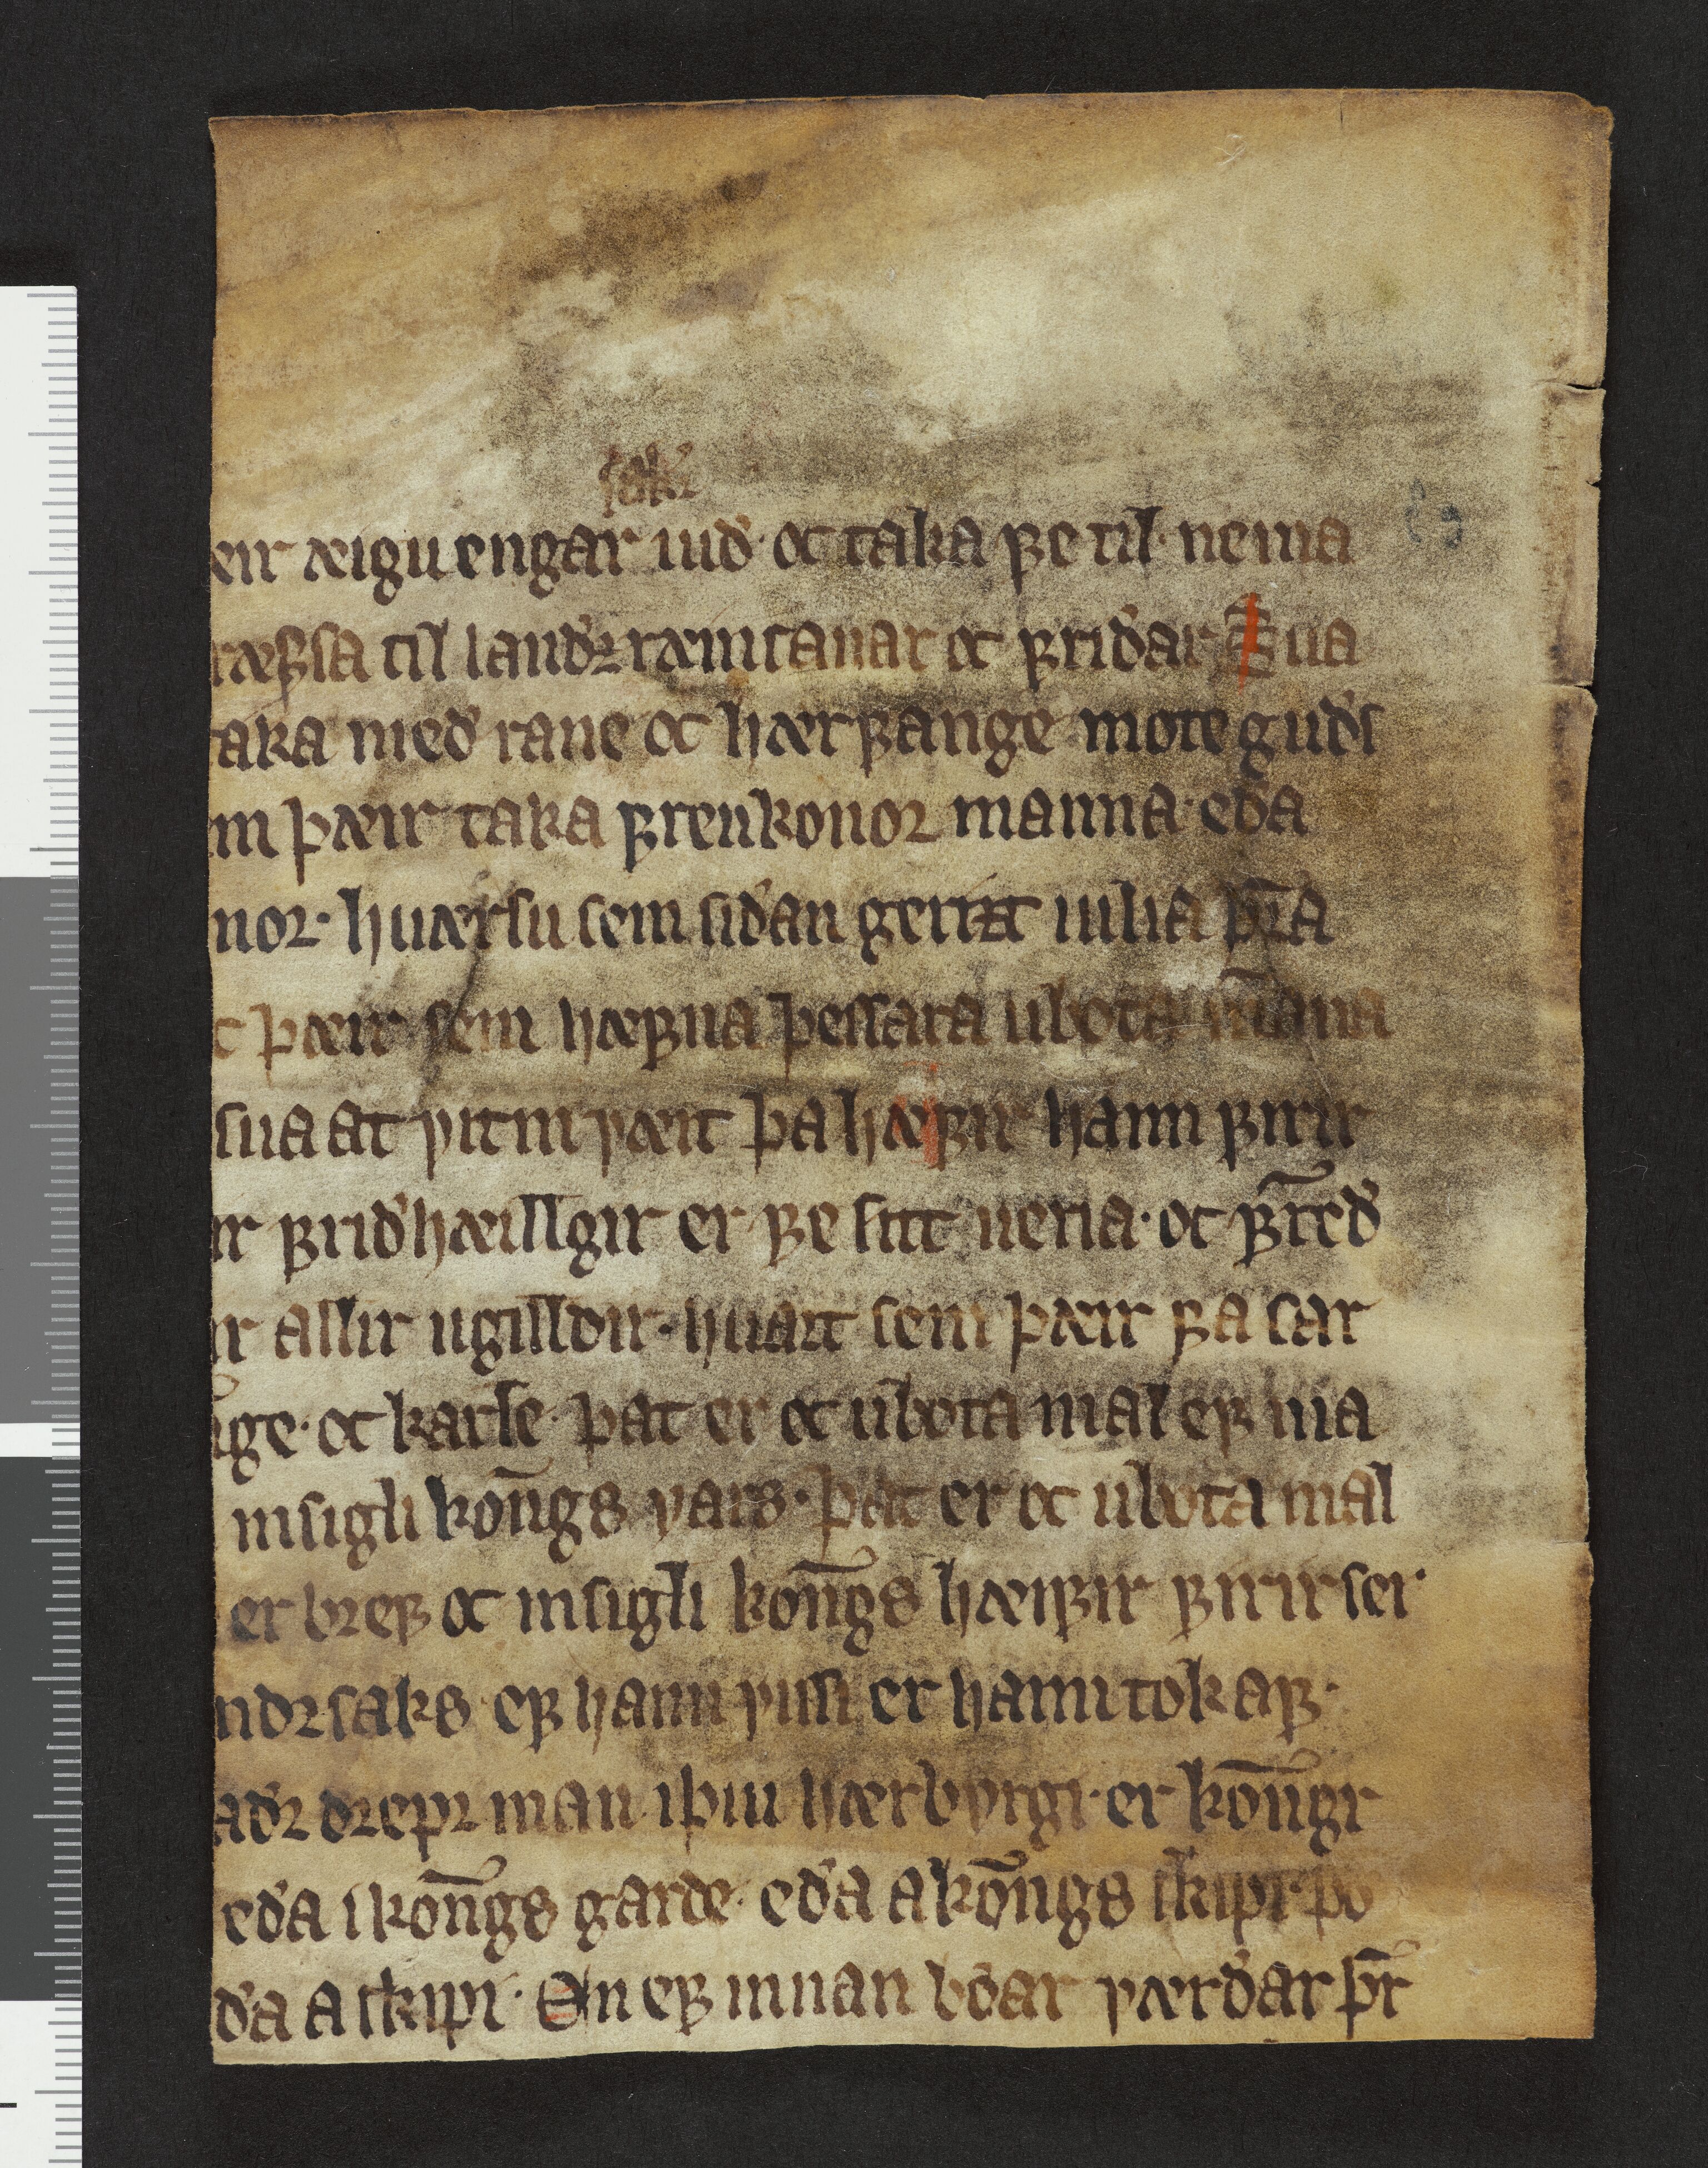 sakir
eir æigu engar uið· oc taka fe til· nema
ræfsa til landꝛ ræinsanar oc friðar Sua
aka með rane oc hærfange mote guðs
m þæir taka frenkonoꝛ manna· eða
noꝛ· huærsu sem siðan geriz̅t uilia f̅ꝛa
t þæir sem hæfna þessara ubota m̅anna
sua at vitni væit þa hæfir hann firir
ir frið hæillgir er fe sitt ueria· oc fr̅eð
ir allir ugilldir· huart sem þæir fa sar
n̅ge· oc karle· þat er oc ubota mal ef ma
insigli ko̅ngs vars· þat er oc ubota mal
er bꝛef oc insigli ko̅ngs hæifir firir ser
ndꝛsaks ef hann vissi er hann tok af·
aðꝛ dꝛepꝛ man i þui hærbyrgi· er ko̅ngr
eða i ko̅ngs garde· eða a ko̅ngs skipi· þo
ða a skipi· En ef innan boar værðar þ̅r